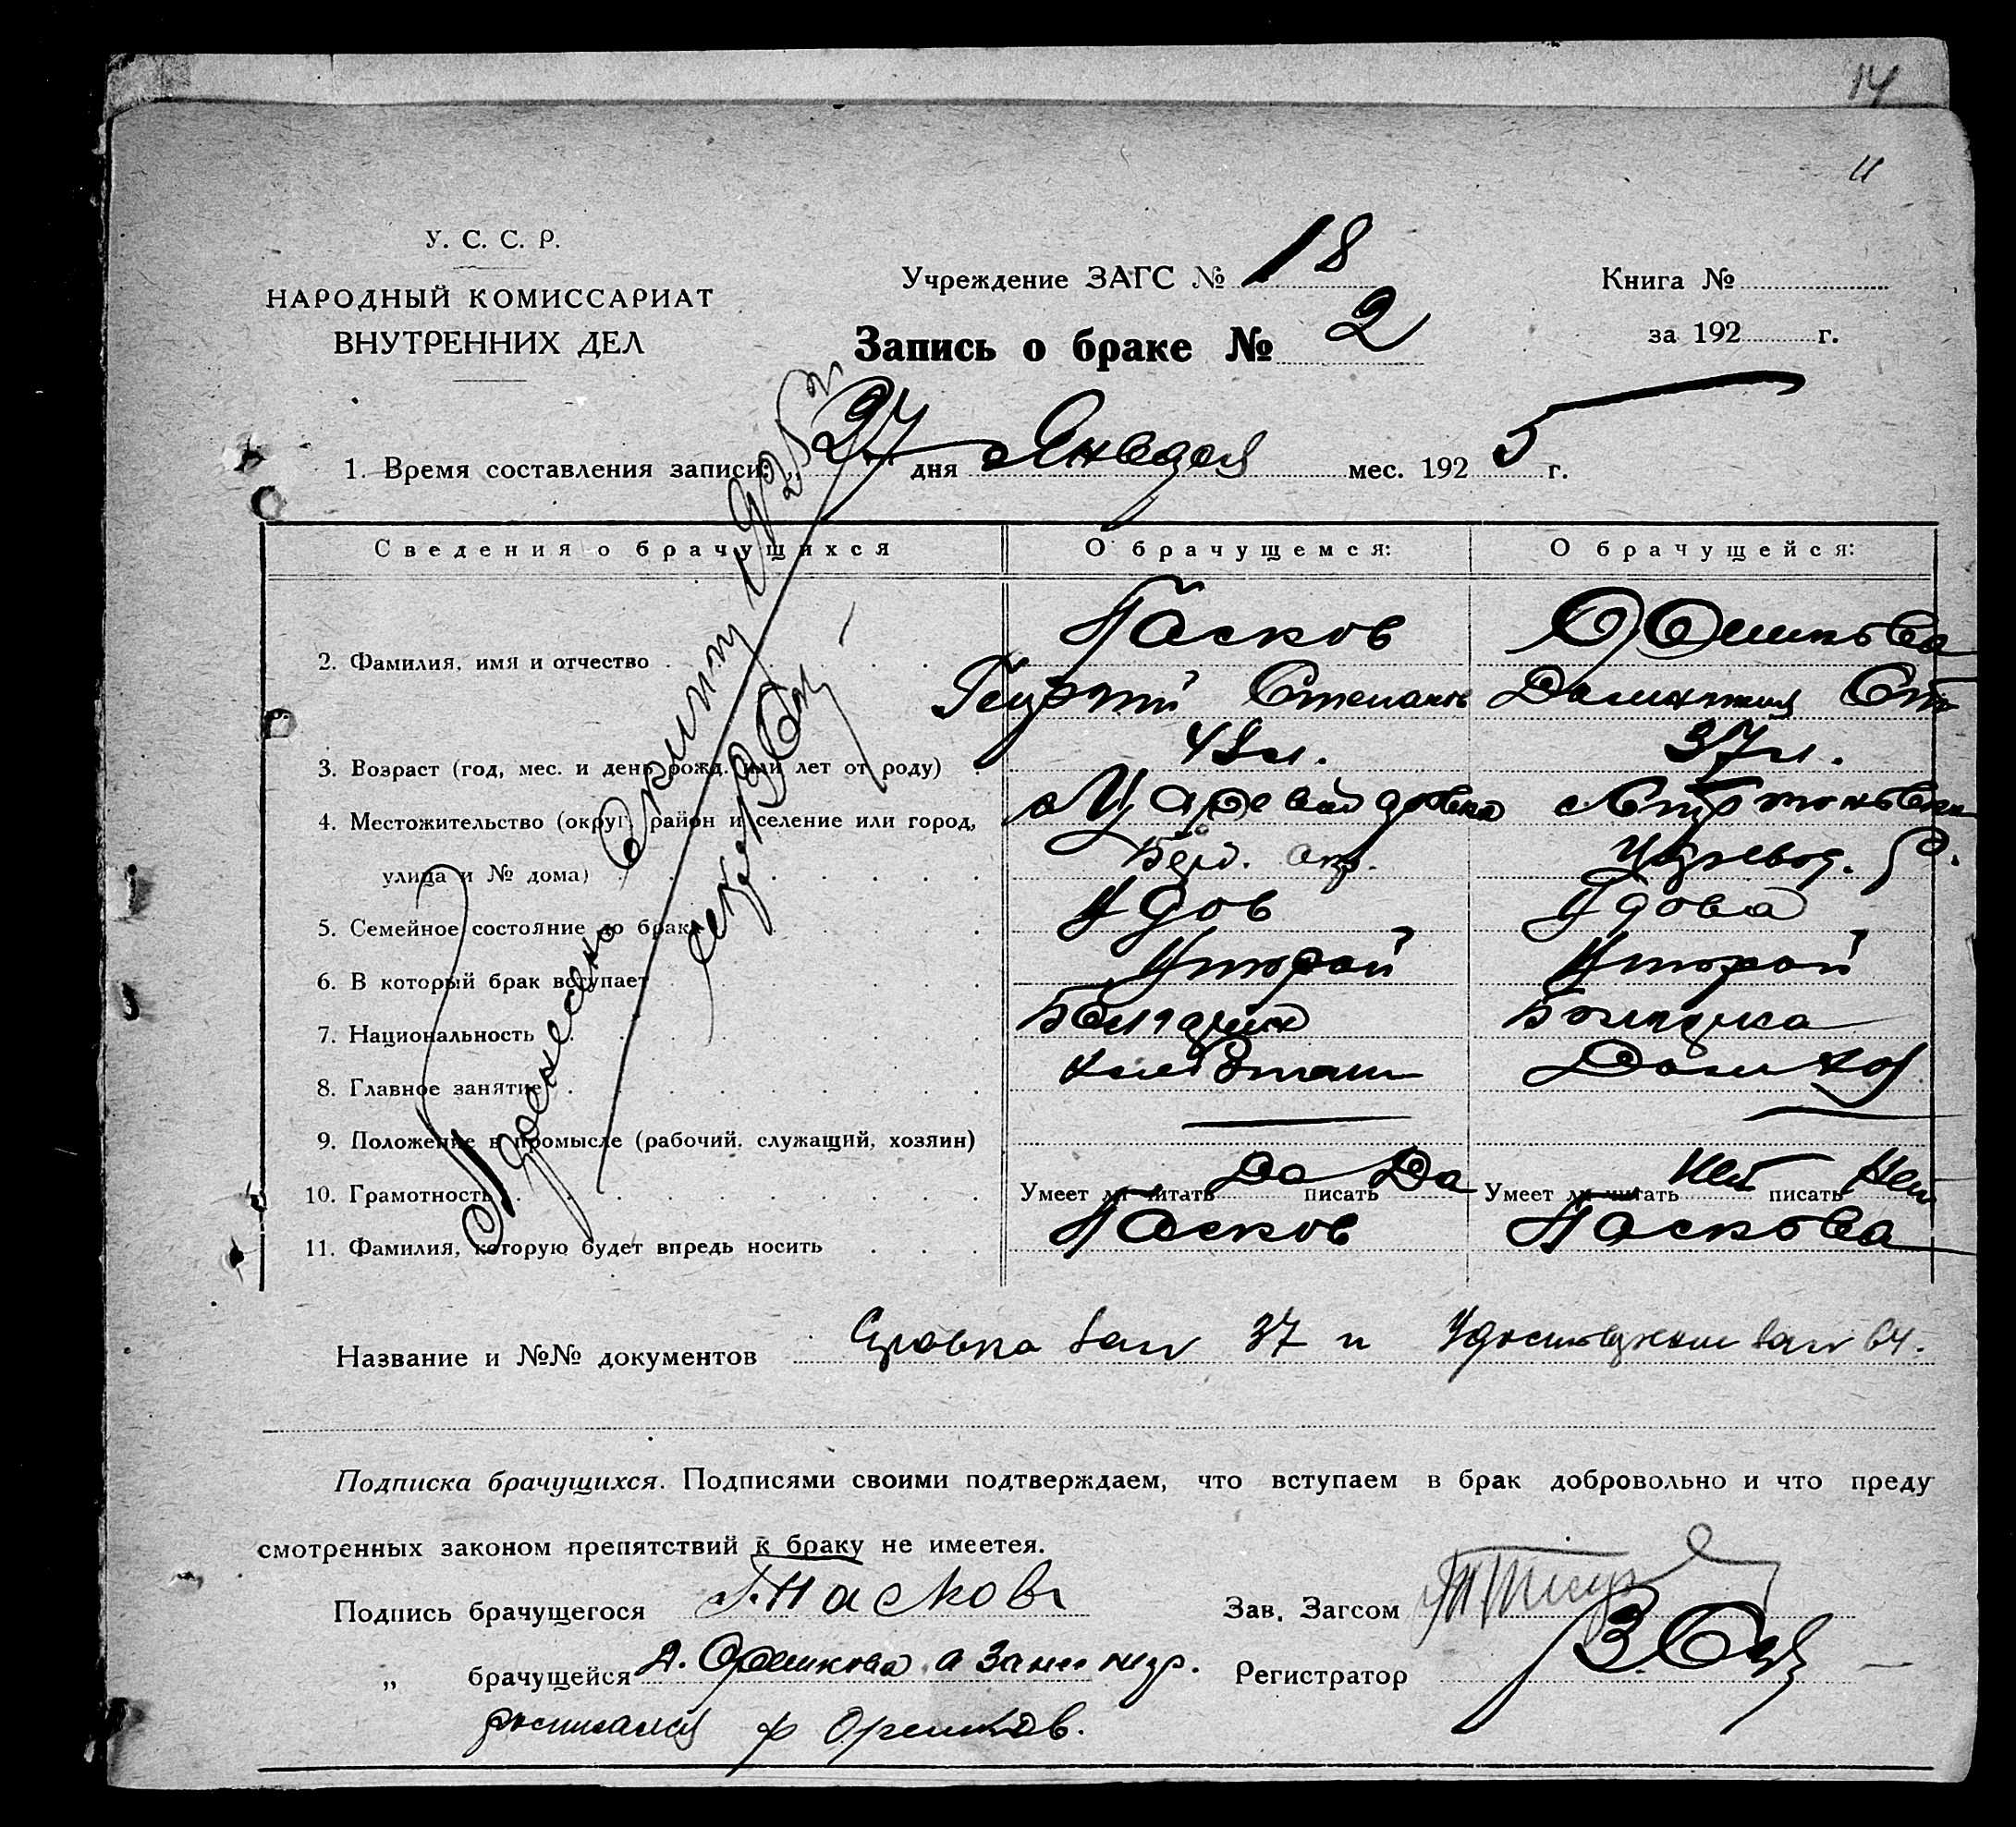 14
11
У. С. С. Р.
НАРОДНЫЙ КОМИССАРИАТ
ВНУТРЕННИХ ДЕЛ
Учреждение ЗАГС № 18
Книга №
Запись о браке № 2
за 192 г.
1. Время составления записи: „ 27 дня Января мес. 1925 г.
Сведения о брачущихся О брачущемся: О брачущейся:
2. Фамилия, имя и отчество
Пасков
Георгий Степанов
3. Возраст (год, мес. и день рожд. или лет от роду) 37 л.
4. Местожительство (округ, район и селение или город,
улица и № дома) Берд. окр. Царевод. р.
5. Семейное состояние до брака Удов Удова
6. В который брак вступает Второй Второй
7. Национальность Болгарин Болгарка
8. Главное занятие
9. Положение в промысле (рабочий, служащий, хозяин)
10. Грамотность Умеет ли читать Да писать Да Умеет ли читать Нет писать Нет
11. Фамилия, которую будет впредь носить Пасков Паскова
Название и №№ документов 37 и 64.
Подписка брачущихся. Подписями своими подтверждаем, что вступаем в брак добровольно и что преду
смотренных законом препятствий к браку не имеетея.
Подпись брачущегося Г. Пасков Зав. Загсом
„ брачущейся А. Орешкова а за нее негр. Регистратор
росписался Ф Орешков.